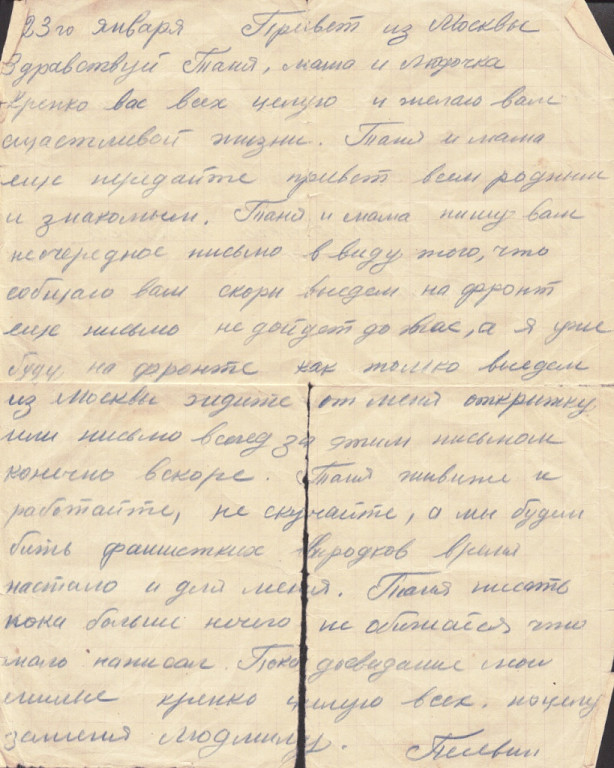 23го января Привет из Москвы
Здравствуй Таня, мама и Людочка
Крепко вас всех целую и желаю вам
счастливой жизни. Таня и мама
еще передайте привет всем родным
и знакомым. Таня и мама пишу вам
неочередное письмо в виду того, что
собщаю вам скоро выедем на фронт
еще письмо не дойдет до вас, а я уже
буду на фронте как только выедем
из Москвы ждите от меня открытку
или письмо вслед за этим письмом
конечно вскоре. Таня живите и
работайте, не скучайте, а мы будем
бить фашистких выродков время
настало и для меня. Таня писать
пока больше нечего не обижайся что
мало написал. Пока досвидание мои
милые крепко целую всех. поцелу
за меня Людмилу.